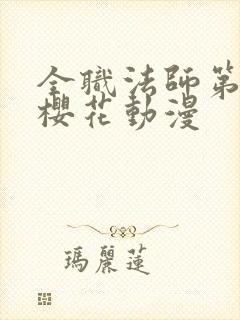 全職法師第
櫻花動漫
瑪麗蓮